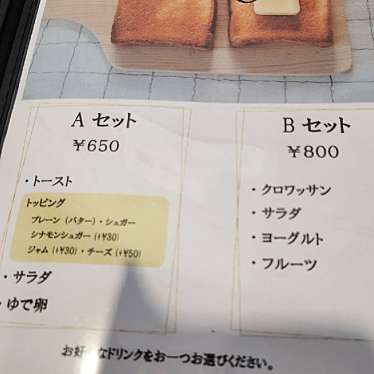 A セット
¥650
・トースト
トッピング
プレーン（バター）・シュガー
シナモンシュガー（+¥30）
ジャム（+¥30）・チーズ（+¥50）
・サラダ
・ゆで卵
B セット
¥800
・クロワッサン
・サラダ
・ヨーグルト
・フルーツ
お好きなドリンクをお一つお選びください。